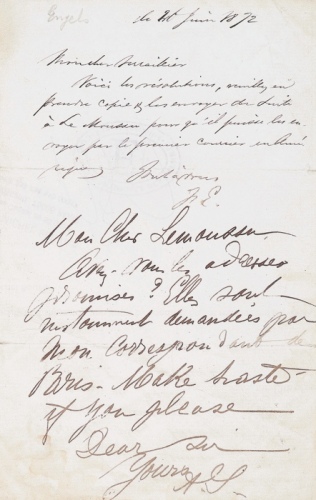 Engels
de 21 Juin 1872
Mon cher Serraillier
Voici les résolutions, veuillez en
prendre copie & les envoyer de suite
à Le Moussu pour qu'il puisse les en-
voyer par le premier courrier en Amé-
rique
Bien à vous
F. E.
Mon Cher Lemoussu.
Avez-vous les adresses
promises? Elles sont
instamment demandées par
mon correspondant de
Paris. Make haste
if you please
Dear Sir
Yours A S